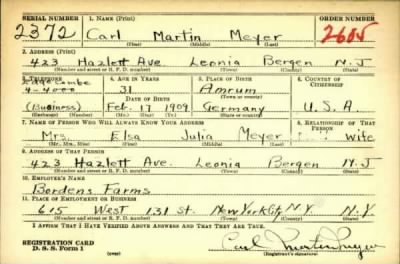 SERIAL NUMBER 1. NAME (Print) ORDER NUMBER
2372 Carl Martin Meyer 2605
(First) (Middle) (Last)
2. ADDRESS (Print)
423 Hazlett Ave. Leonia Bergen N.J
(Number and street or R. F. D. number) (Town) (County) (State)
3. TELEPHONE 4. AGE IN YEARS 5. PLACE OF BIRTH 6. COUNTRY OF CITIZENSHIP
Edgecombe
4-4000 31 Amrum
DATE OF BIRTH (Town or county)
(Business) Feb. 17 1909 Germany U.S.A.
(Mo.) (Day) (Yr.) (State or country)
7. NAME OF PERSON WHO WILL ALWAYS KNOW YOUR ADDRESS 8. RELATIONSHIP OF THAT PERSON
Mrs. Elsa Julia Meyer Wife
(Mr., Mrs., Miss) (First) (Middle) (Last)
9. ADDRESS OF THAT PERSON
423 Hazlett Ave. Leonia Bergen N.J
(Number and street or R. F. D. number) (Town) (County) (State)
10. EMPLOYER'S NAME
Bordens Farms
11. PLACE OF EMPLOYMENT OR BUSINESS
615 West 131 St. New York City N.Y. N.Y.
(Number and street or R. F. D. number) (Town) (County) (State)
I AFFIRM THAT I HAVE VERIFIED ABOVE ANSWERS AND THAT THEY ARE TRUE.
REGISTRATION CARD
D. S. S. Form 1 Carl Martin Meyer